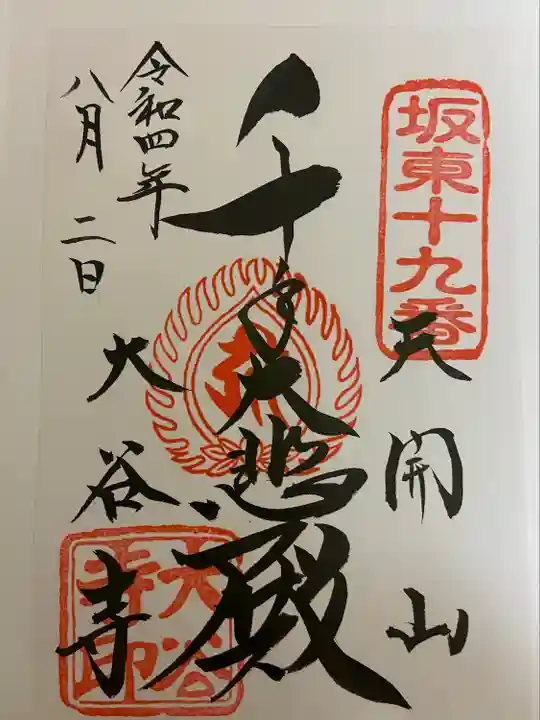 坂東十九番
天開山
千手大悲殿
令和四年
八月二日
大谷寺
大谷寺印